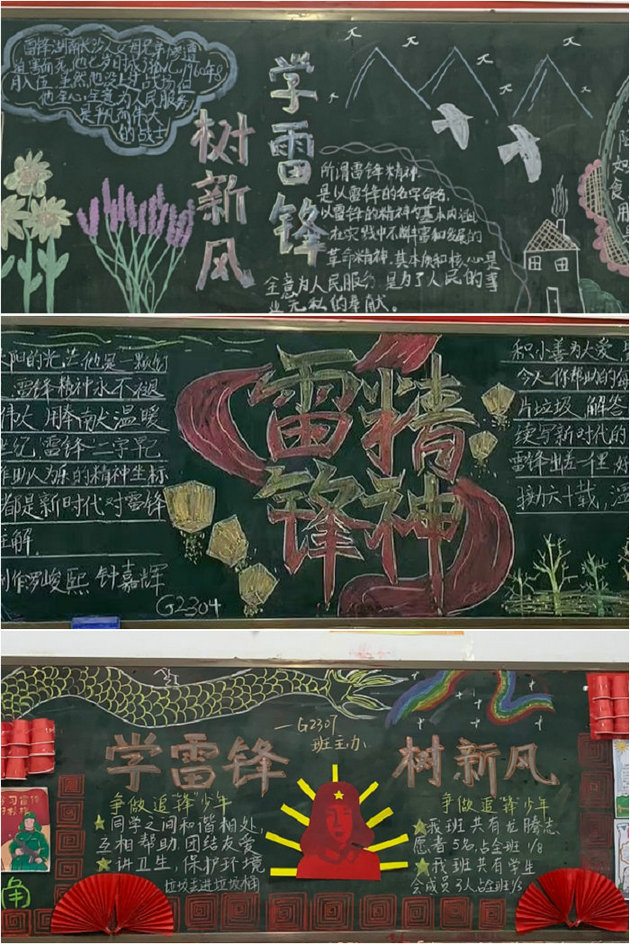 雷锋湖南长沙人
月入伍
他全心全意为人民服务
是平凡而伟大
的战士
树新风
学雷锋
所谓雷锋精神
是以雷锋的名字命名
以雷锋的精神为基本内涵
在实践中不断丰富和发展的
革命精神,其本质和核心是
全心全意为人民服务,是为了人民的事
业无私的奉献。
阳的光芒他是一颗
雷锋精神永不褪
伟大 用奉献温暖
世纪"雷锋"二字早已
作助人为乐的精神坐标
都是新时代对雷锋
注解.
制作罗峻熙 钟嘉辉
G2304
雷锋
精神
积小善为大爱,
今人你帮助的每
片垃圾 解答
续写新时代的
雷锋出差千里 好
G2307
班主办
学雷锋
树新风
争做追"锋"少年
同学之间和谐相处,
互相帮助 团结友爱
讲卫生,保护环境
垃圾丢进垃圾桶
争做追"锋"少年
我班共有龙腾志
愿者5名,占全班1/8
我班共有学生
会成员3人占全班1/3